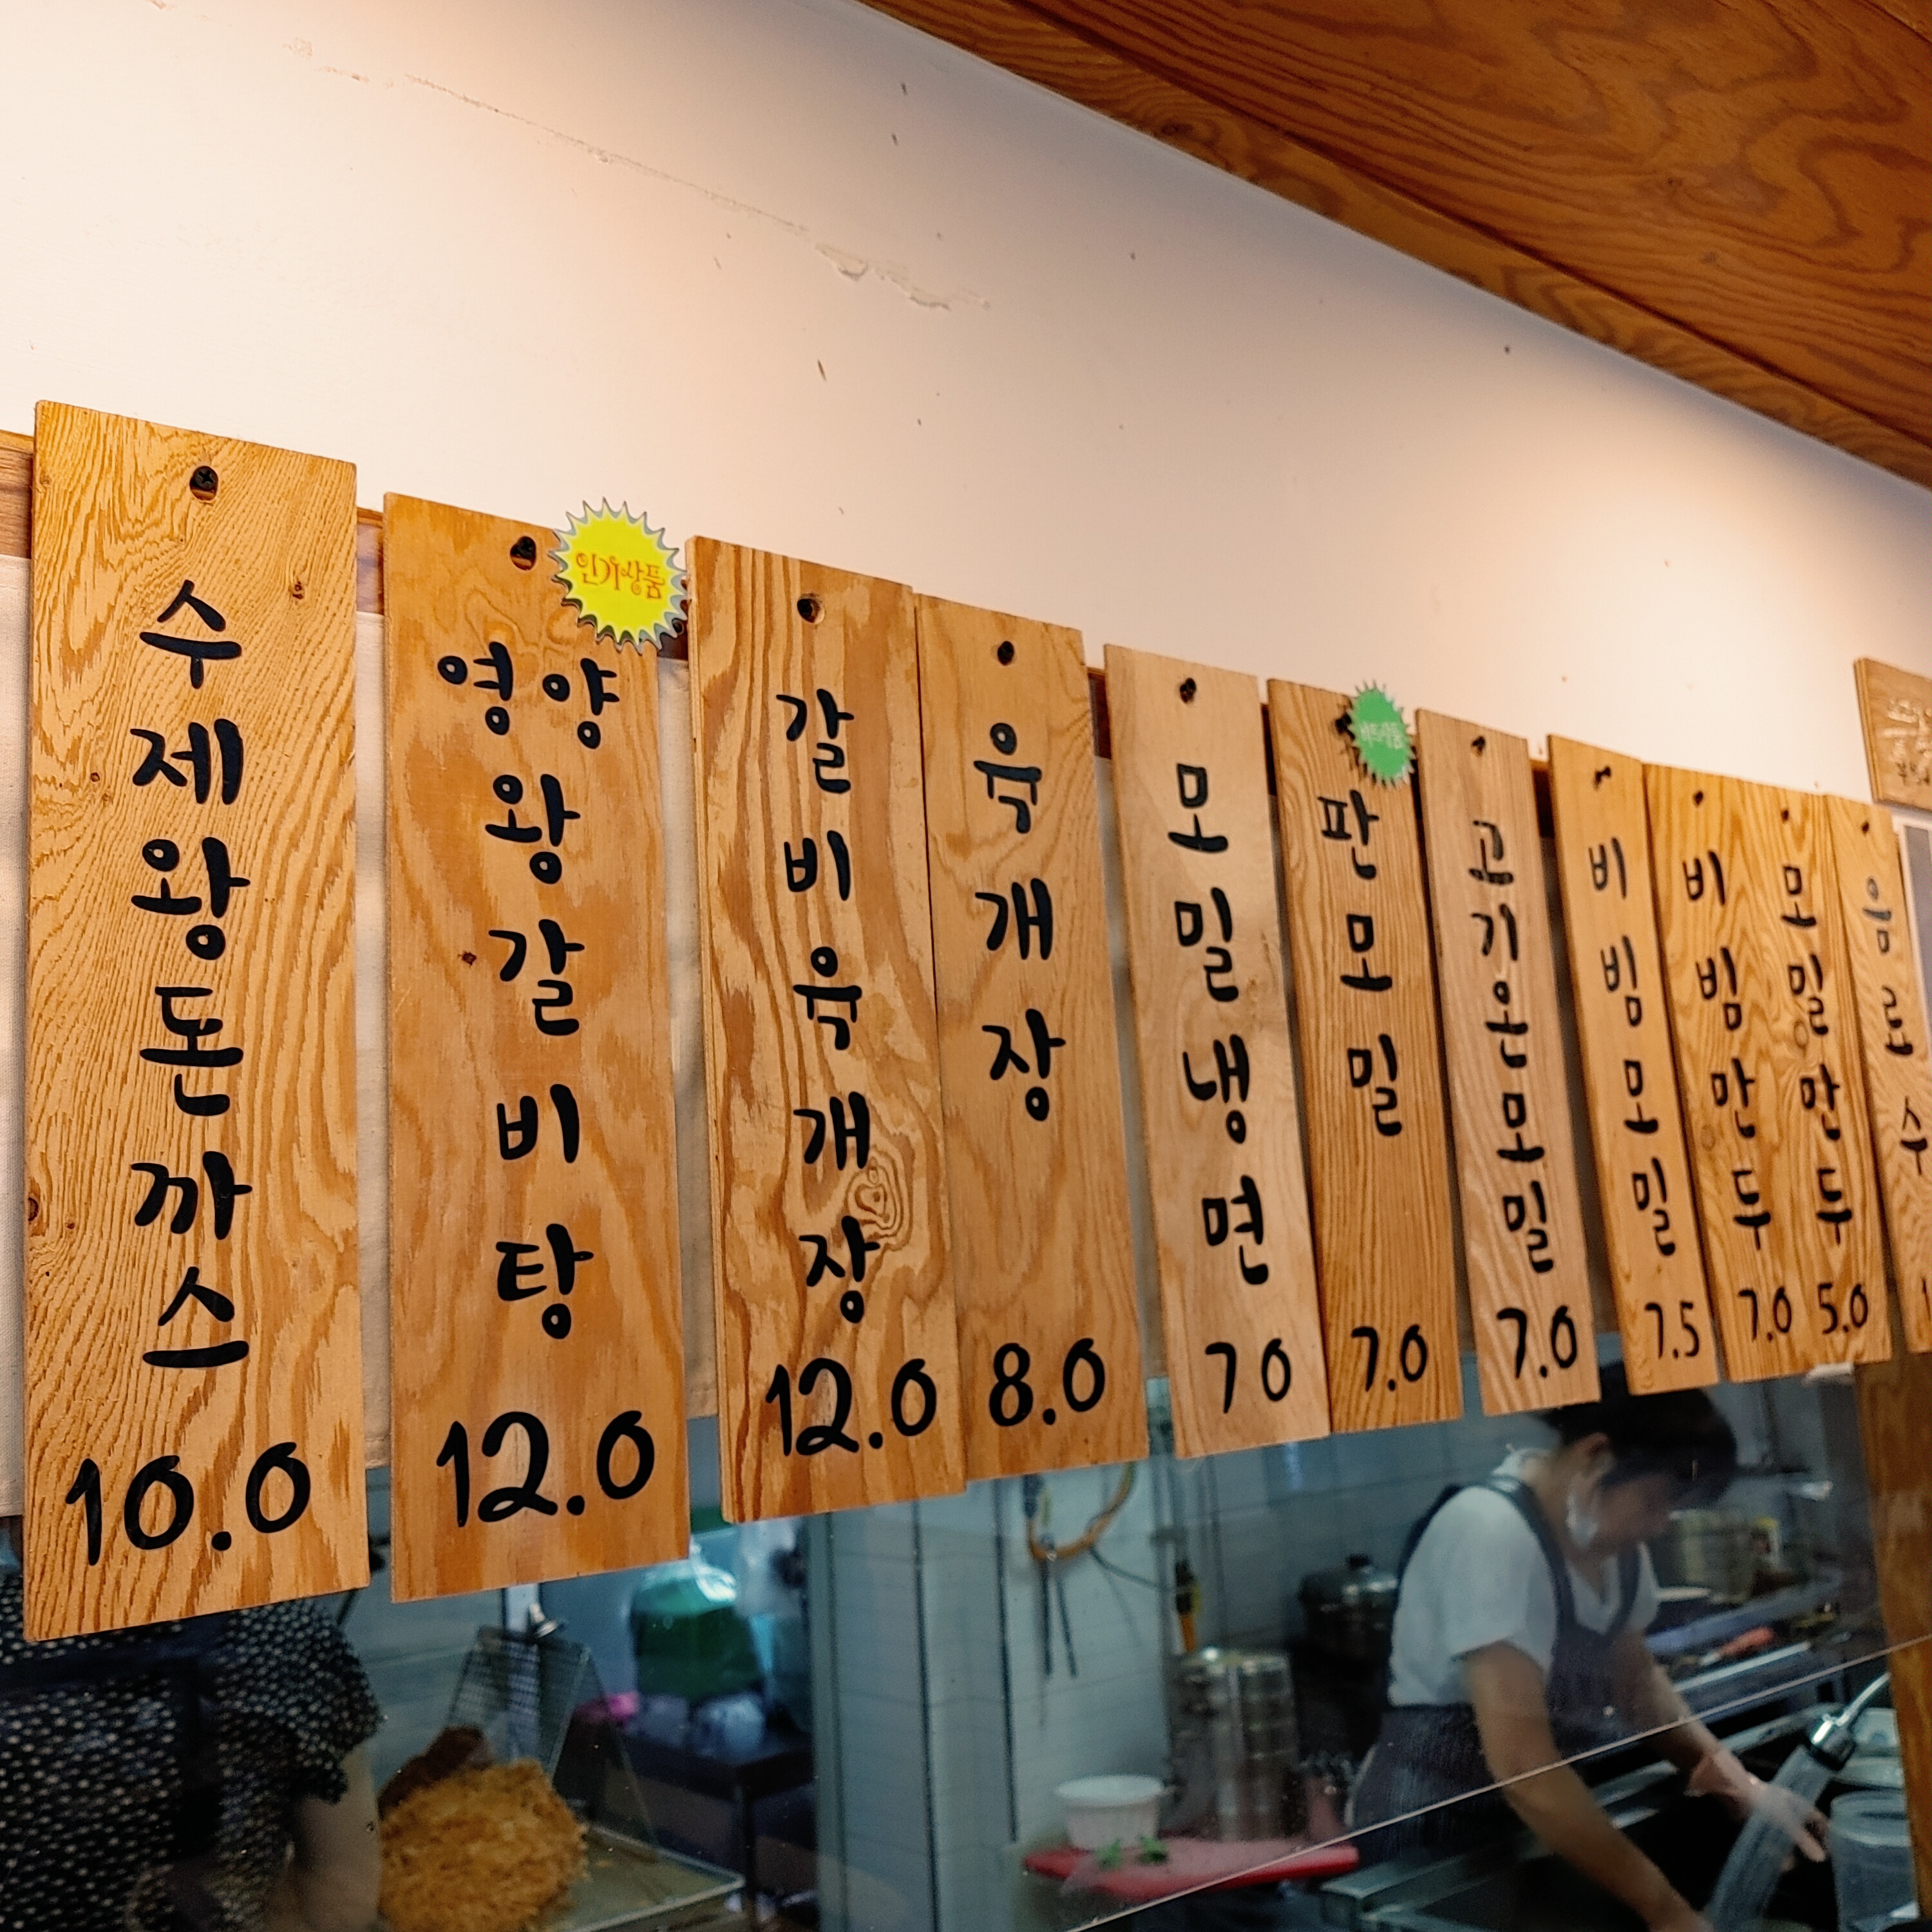 수제왕돈까스
10.0
인기상품
영양
왕갈비탕
12.0
갈비육개장
12.0
육개장
8.0
모밀냉면
7 0
판모밀
7.0
고기온모밀
7.0
비빔모밀
7.5
비빔만두
7.0
모밀만두
5.0
음료수